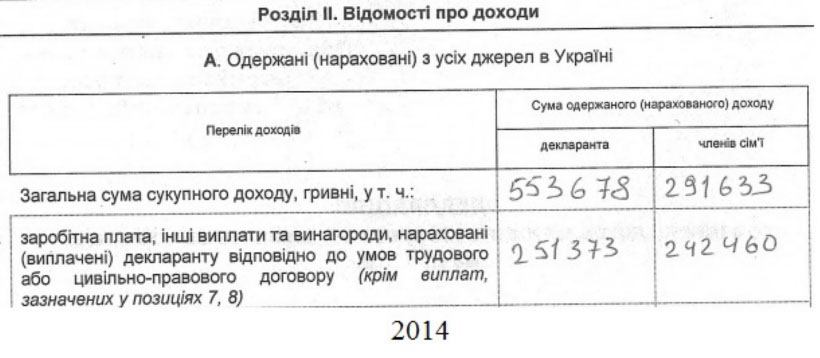 Розділ II. Відомості про доходи
А. Одержані (нараховані) з усіх джерел в Україні
Перелік доходів
Сума одержаного (нарахованого) доходу
декларанта
членів сім'ї
Загальна сума сукупного доходу, гривні, у т. ч.:
553678
291633
заробітна плата, інші виплати та винагороди, нараховані
(виплачені) декларанту відповідно до умов трудового
або цивільно-правового договору (крім виплат,
зазначених у позиціях 7, 8)
251373
242460
2014